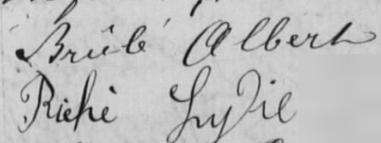 Brûlé Albert
Riché Lydie